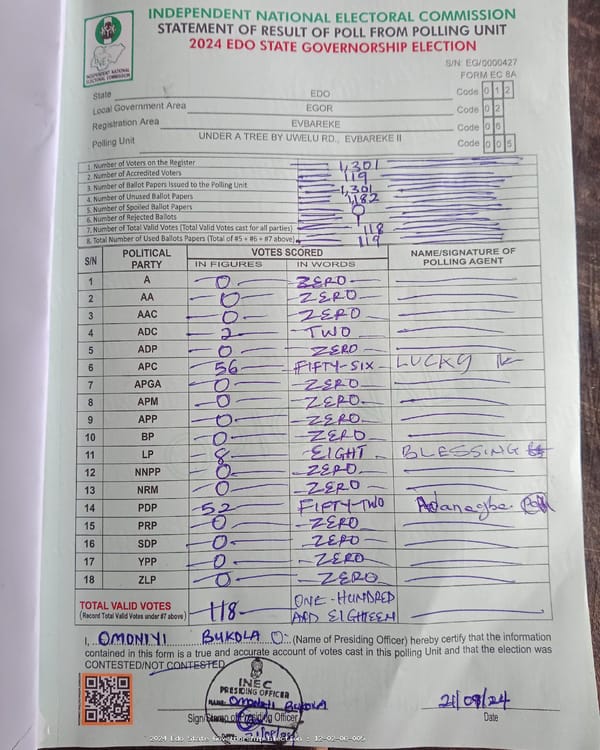 INDEPENDENT NATIONAL ELECTORAL COMMISSION
STATEMENT OF RESULT OF POLL FROM POLLING UNIT
2024 EDO STATE GOVERNORSHIP ELECTION
INEC
INDEPENDENT NATIONAL ELECTORAL COMMISSION
S/N: EG/0000427
FORM EC 8A
State EDO Code 0 1 2
Local Government Area EGOR Code 0 2
Registration Area EVBAREKE Code 0 6
Polling Unit UNDER A TREE BY UWELU RD., EVBAREKE II Code 0 0 5
1. Number of Voters on the Register 1,301
2. Number of Accredited Voters 119
3. Number of Ballot Papers Issued to the Polling Unit 1,301
4. Number of Unused Ballot Papers 1,182
5. Number of Spoiled Ballot Papers 0
6. Number of Rejected Ballots 1
7. Number of Total Valid Votes (Total Valid Votes cast for all parties) 118
8. Total Number of Used Ballots Papers (Total of #5 + #6 + #7 above) 119
S/N POLITICAL PARTY VOTES SCORED NAME/SIGNATURE OF POLLING AGENT
IN FIGURES IN WORDS
1 A 0 ZERO
2 AA 0 ZERO
3 AAC 0 ZERO
4 ADC 2 TWO
5 ADP 0 ZERO
6 APC 56 FIFTY-SIX LUCKY
7 APGA 0 ZERO
8 APM 0 ZERO
9 APP 0 ZERO
10 BP 0 ZERO
11 LP 8 EIGHT BLESSING
12 NNPP 0 ZERO
13 NRM 0 ZERO
14 PDP 52 FIFTY-TWO
15 PRP 0 ZERO
16 SDP 0 ZERO
17 YPP 0 ZERO
18 ZLP 0 ZERO
TOTAL VALID VOTES 118 ONE-HUNDRED
(Record Total Valid Votes under #7 above) AND EIGHTEEN
I, OMONIYI BUKOLA O. (Name of Presiding Officer) hereby certify that the information
contained in this form is a true and accurate account of votes cast in this polling Unit and that the election was
CONTESTED/NOT CONTESTED
INEC
PRESIDING OFFICER
NAME: OMONIYI BUKOLA
Sign/Stamp of Presiding Officer
21/09/24
21/09/24
Date
2024 Edo State Governorship Election - 12-02-06-005